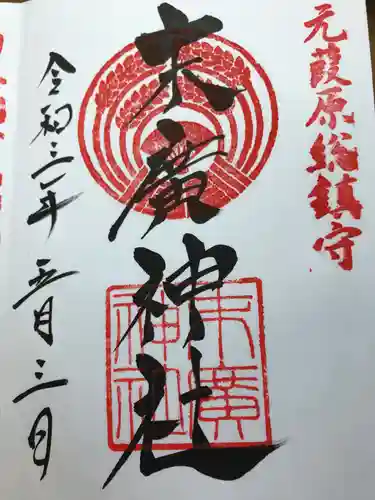 元葭原総鎮守
末廣神社
末廣
神社
令和三年五月三日